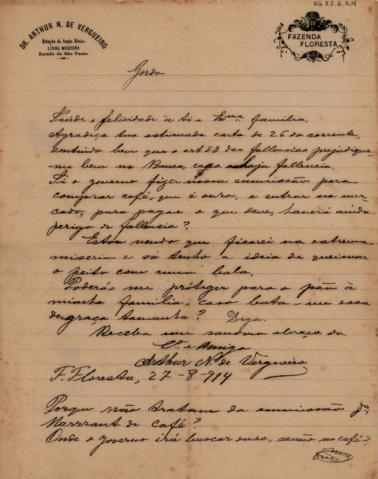 AG 22.6.4.4
DR. ARTHUR N. DE VERGUEIRO
Estação de Santa Eloisa
LINHA MOGYANA
Estado de São Paulo
FAZENDA
FLORESTA
Gordo
Saude e felicidade a ti e Exma. familia.
Agradeço tua estimada carta de 26 do corrente,
sentindo bem que o art 83 das fallencias prejudique-
me bem no Banco, caso haja fallencia.
Si o governo fizer nova emmissão para
comprar café, que é ouro, e entrar no mer-
cado, para pagar o que deve, haverá ainda
perigo de fallencia?
Estou vendo que ficarei na extrema
miseria e só tenho a ideia de queimar
o peito com uma bala.
Poderás me proteger para o pão á
minha familia, caso tenha essa
desgraça tamanha? Diga.
Receba um saudoso abraço do
Cº e Amigo
Arthur N. de Vergueiro
F. Floresta, 27-8-914
Porque não tratam da emmissão
Warrant de café?
Onde o governo irá buscar ouro, senão no café?